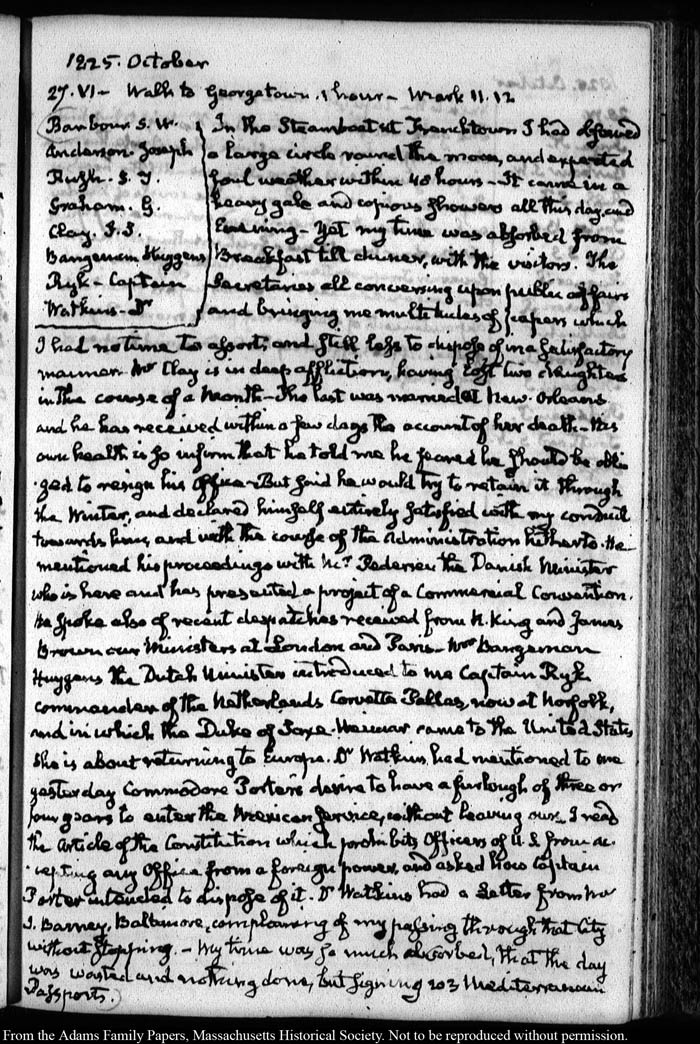 1825. October
27. VI– Walk to Georgetown. 1 hour– Mark 11.12
Barbour S. W.
Anderson. Joseph
Rush. S. T.
Graham. G.
Clay. S. S.
Bangeman Huygens
Ryk – Captain
Watkins – Dr
In the Steamboat at Frenchtown I had observed
a large circle round the moon, and expected
foul weather within 48 hours – It came in a
heavy gale and copious showers all this day, and
Evening – Yet my time was absorbed from
Breakfast till dinner, with the visitors. The
Secretaries all conversing upon public affairs
and bringing me multitudes of papers which
I had no time to assort, and still less to dispose of in a satisfactory
manner. Mr Clay is in deep affliction, having lost two daughters
in the course of a Month – The last was married at New-Orleans
and he has received within a few days the account of her death – His
own health is so infirm that he told me he feared he should be obli
ged to resign his Office – But said he would try to retain it through
the Winter, and declared himself entirely satisfied with my conduct
towards him, and with the course of the Administration hitherto. He
mentioned his proceedings with Mr. Pedersen the Danish Minister
who is here and has presented a project of a Commercial Convention.
He spoke also of recent despatches received from R. King and James
Brown our Ministers at London and Paris – Mr Bangeman
Huygens the Dutch Minister introduced to me Captain Ryk
commander of the Netherlands Corvette Pallas, now at Norfolk,
and in which the Duke of Saxe-Weimar came to the United States
She is about returning to Europe. Dr Watkins had mentioned to me
yesterday Commodore Porter's desire to have a furlough of three or
four years to enter the Mexican service, without leaving ours. I read
the Article of the Constitution which prohibits Officers of U.S. from ac
cepting any Office from a foreign power, and asked how Captain
Porter intended to dispose of it. Dr Watkins had a Letter from Mr
J. Barney, Baltimore, complaining of my passing through that City
without stopping. – My time was so much absorbed, that the day
was wasted and nothing done, but signing 203 Mediterranean
Passports.
From the Adams Family Papers, Massachusetts Historical Society. Not to be reproduced without permission.